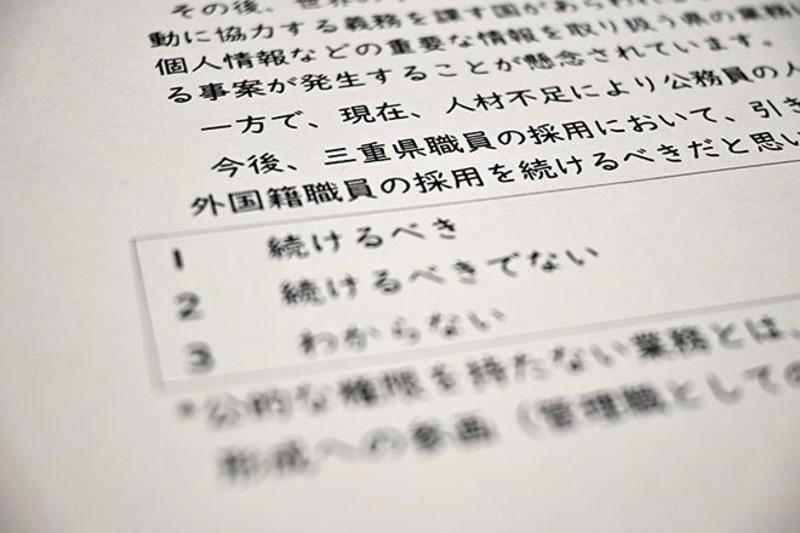 その後、世界の
動に協力する義務を課す国があらわれ
個人情報などの重要な情報を取り扱う県の業務
る事案が発生することが懸念されています。
一方で、現在、人材不足により公務員の人
今後、三重県職員の採用において、引き
外国籍職員の採用を続けるべきだと思い
1 続けるべき
2 続けるべきでない
3 わからない
*公的な権限を持たない業務とは、
形成への参画（管理職としての